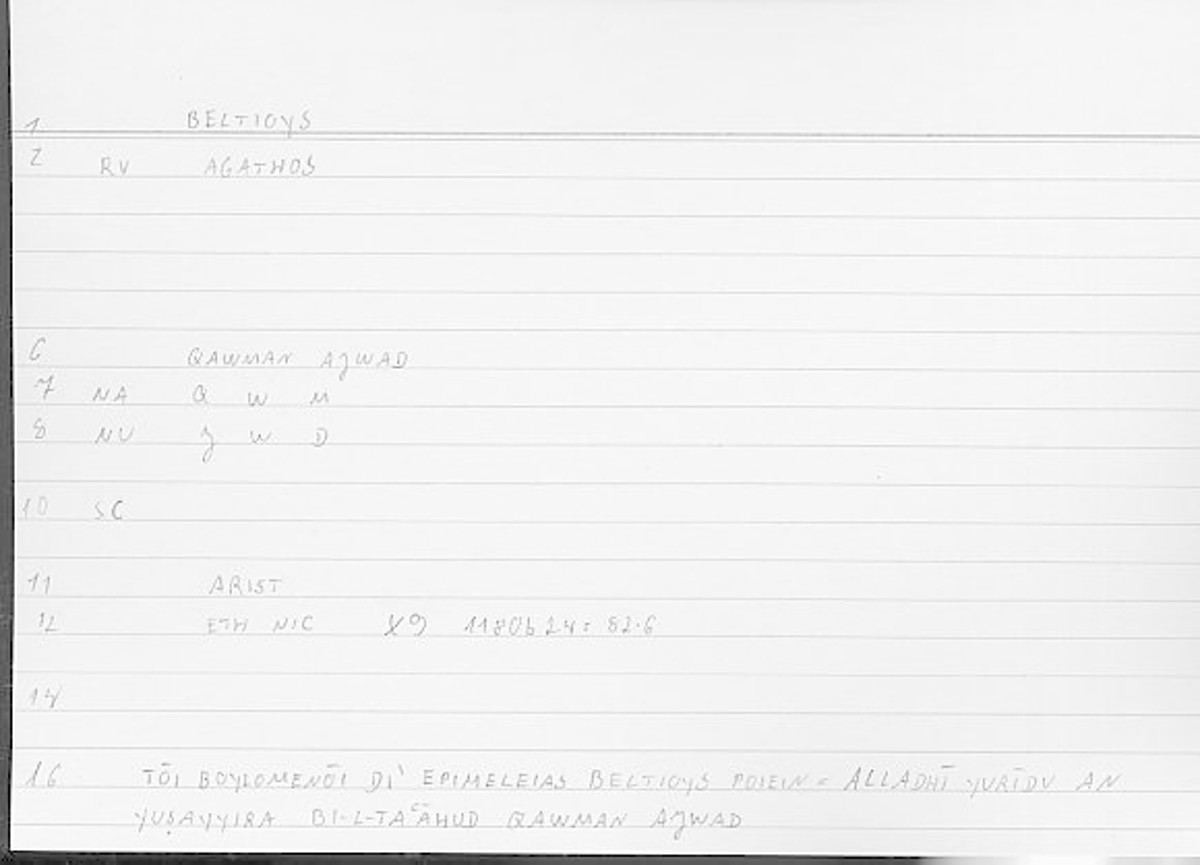 1 BELTIOYS
2 RV AGATHOS
6 QAWMAN AJWAD
7 NA Q W M
8 NU J W D
10 SC
11 ARIST
12 ETH NIC X9 1180b 24 = 82.6
14
16 TŌI BOYLOMENŌI DI' EPIMELEIAS BELTIOYS POIEIN = ALLADHĪ YURĪDU AN
YUṢAYYIRA BI-L-TAʿĀHUD QAWMAN AJWAD